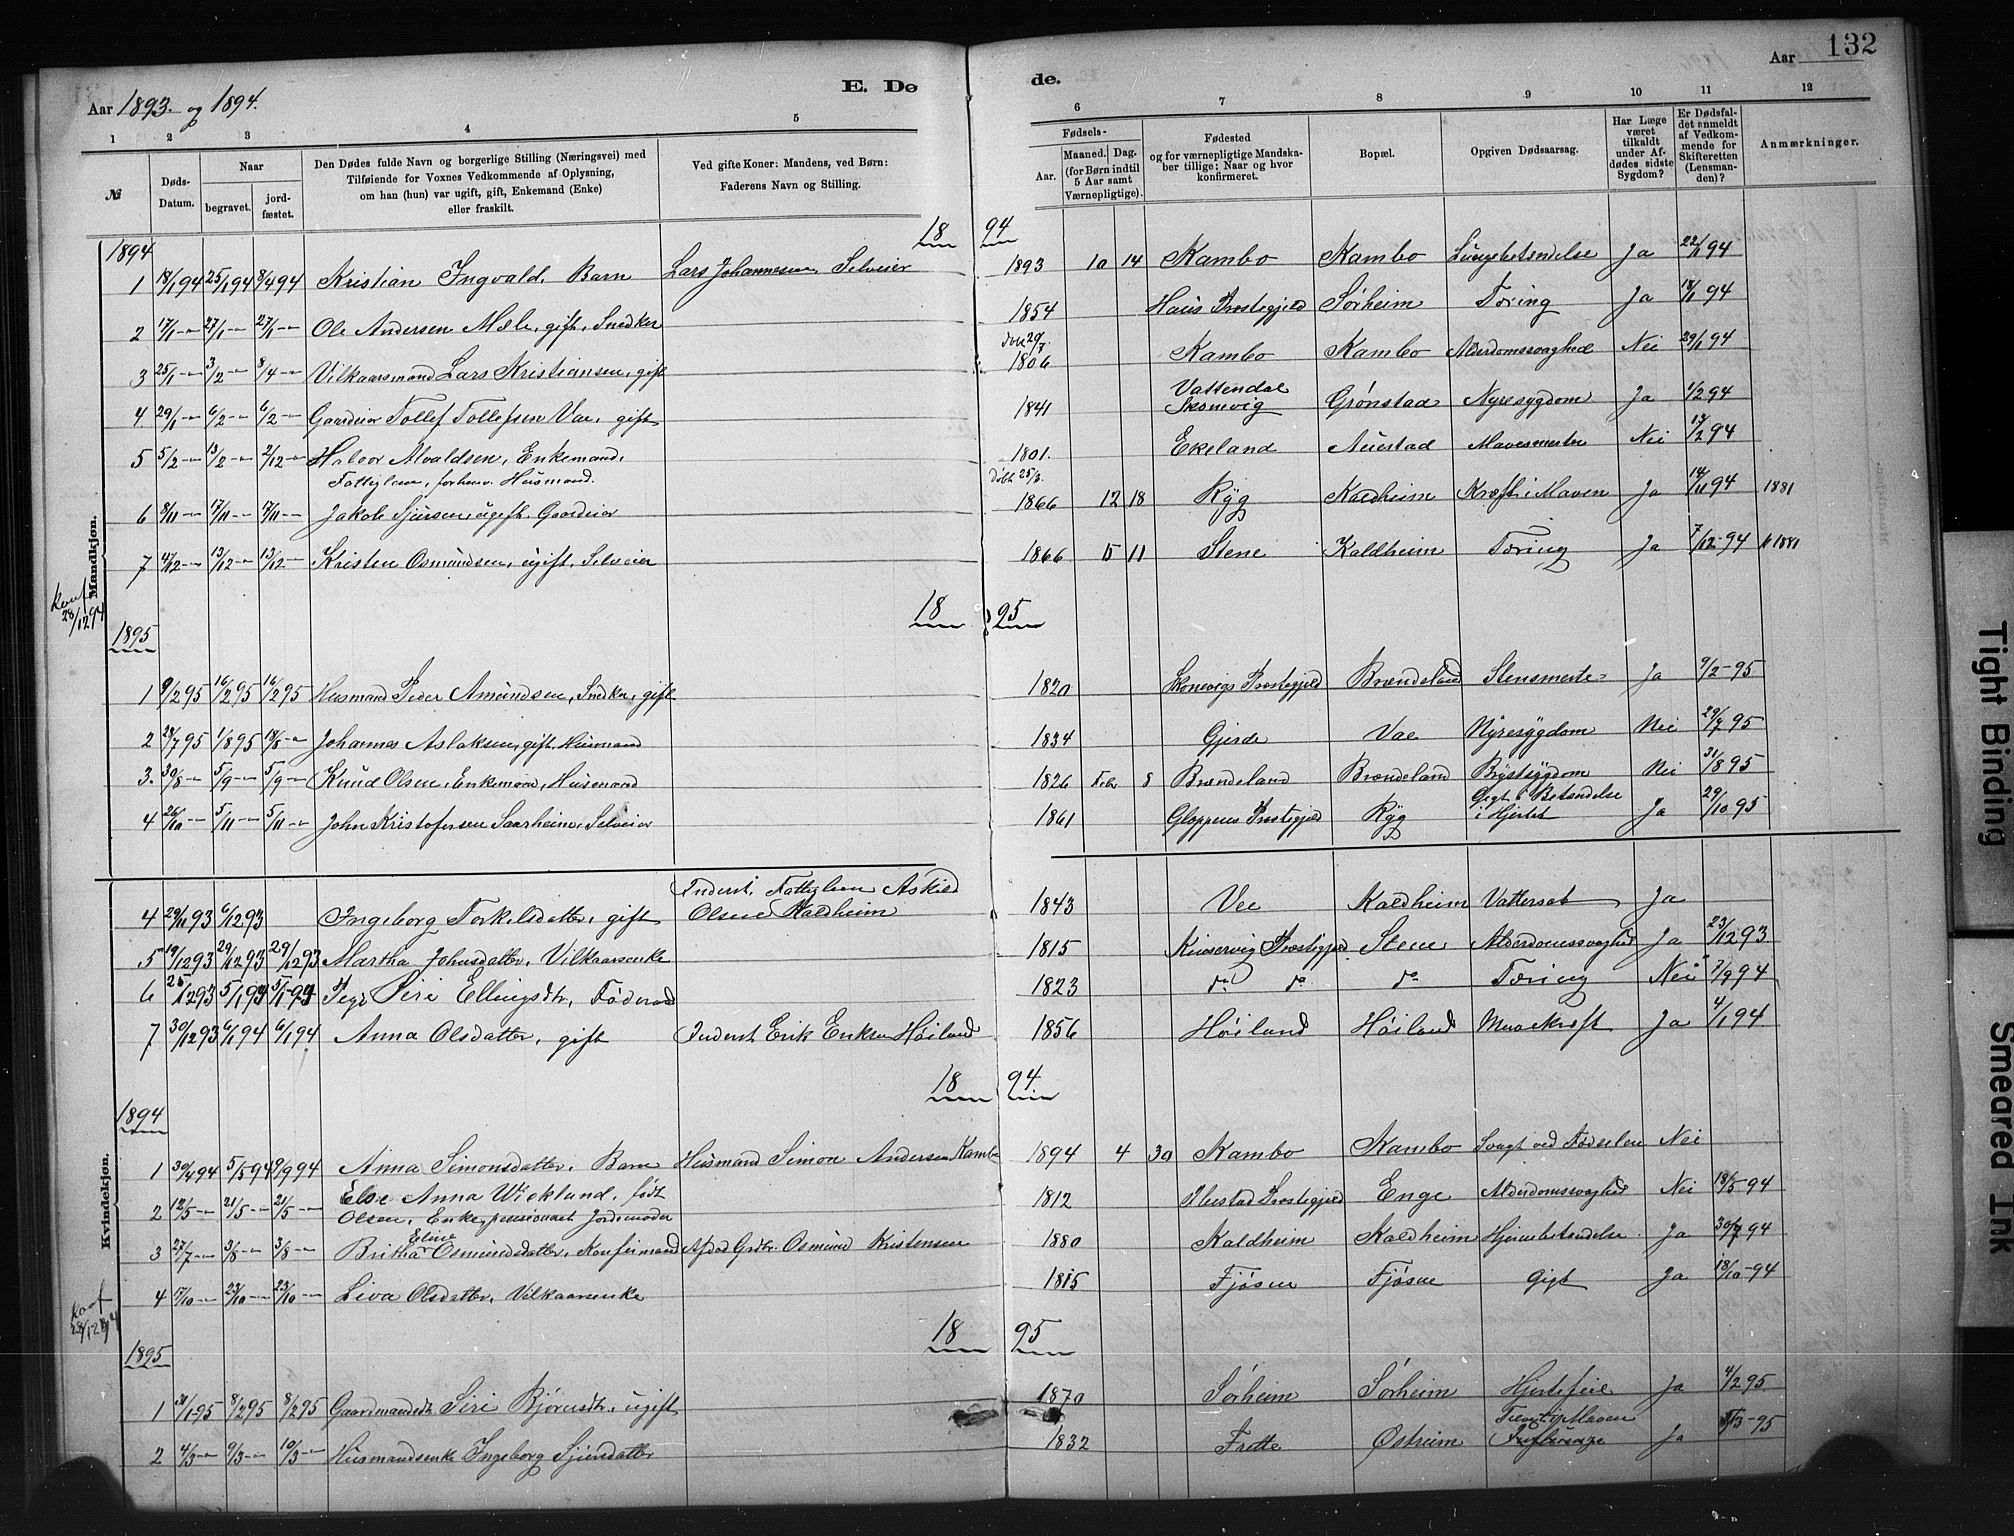 132
E. Dø
de.
Aar 1893. og 1894.
Aar
1 2 3 4 5
6 7 8 9 10 11 12
№
Døds-Datum.
Naar
begravet.
jord-fæstet.
Den Dødes fulde Navn og borgerlige Stilling (Næringsvei) med
Tilføiende for Voxnes Vedkommende af Oplysning,
om han (hun) var ugift, gift, Enkemand (Enke)
eller fraskilt.
Ved gifte Koner: Mandens, ved Børn:
Faderens Navn og Stilling.
Fødsels-
Aar.
Maaned. Dag.
(for Børn indtil
5 Aar samt
Værnepligtige).
Fødested
og for værnepligtige Mandska-
ber tillige: Naar og hvor
konfirmeret.
Bopæl.
Opgiven Dødsaarsag.
Har Læge
været
tilkaldt
under Af-
dødes sidste
Sygdom?
Er Dødsfal-
det anmeldt
af Vedkom-
mende for
Skifteretten
(Lensman-
den)?
Anmærkninger.
Mandkjøn.
1894
18 94
1 18/1 94 25/1 94 8/4 94 Kristian Ingvald, Barn Lars Johannesen Selveier 1893 10 14 Kambo Kambo Lungebetendelse Ja 22/1 94
2 17/1 -"- 27/1 -"- 27/1 -"- Ole Andersen Mæle, gift, Snedker 1854 Haus Præstegjeld Sørheim Tæring Ja 18/1 94
3 25/1 -"- 3/2 -"- 8/4 -"- Vilkaarsmand Lars Kristiansen, gift 1806 Kambo Kambo Alderdomssvaghed Nei 29/1 94
4 29/1 -"- 6/2 -"- 6/2 -"- Gaardeier Tollef Tollefsen Vae, gift 1841 Vattendal Skonevig Grønstad Nyresygdom Ja 1/2 94
5 5/2 -"- 13/2 -"- 2/12 -"- Halvor Alvaldsen, Enkemand, 1801. Ekeland Auestad Mavesmerter Nei 17/2 94
Fattiglem, forhenv. Husmand.
døbt 25/3.
6 8/11 -"- 17/11 -"- 17/11 -"- Jakob Sjursen, ugift, Gaardeier 1866 12 18 Ryg Kaldheim Kræft i Maven Ja 14/11 94 1881
7 4/12 -"- 13/12 -"- 13/12 -"- Kristen Osmundsen, ugift, Selveier 1866 5 11 Stene Kaldheim Tæring Ja 7/12-94 1881
28/12 94
1895
18 95
1 9/2 95 16/2 95 16/2 95 Husmand Peder Amundsen, Snedker, gift 1820 Skonevigs Præstegjeld Brændeland Stensmerte Ja 9/2-95
2 23/7 95 1/8 95 18/8 -"- Johannes Aslaksen, gift, Husmand 1834 Gjerde Vae Nyresygdom Nei 29/7 95
3. 30/8 -"- 5/9 -"- 5/9 -"- Knud Olsen, Enkemand, Husmand 1826 Febr 8 Brændeland Brændeland Brystsygdom Nei 31/8 95
4 26/10 -"- 5/11 -"- 5/11 -"- John Kristofersen Saarheim, Selveier 1861 Gloppens Præstegjeld Ryg Gigt i Betendelse i Hjertet Ja 29/10 95
Kvindekjøn.
4 29/11 93 6/12 93 Ingeborg Torkelsdatter, gift Inderst, Fattiglem Askild Olsen Kaldheim 1843 Vee Kaldheim Vattersot Ja
5 19/12 93 29/12 93 29/12 93 Martha Johnsdatter, Vilkaarsenke 1815 Kinservig Præstegjeld. Stene Alderdomssvaghed Ja 23/12 93
6 25/12 93 5/1 94 5/1-94 Pige Siri Ellingsdtr, Føderaad 1823 do do do Tæring Nei 7/2 94
7 30/12 93 6/1 94 6/1 94 Anna Olsdatter, gift Inderst Erik Eriksen Høiland 1856 Høiland Høiland Mavekræft Ja 4/1 94
1894
18 94
1 30/4 94 5/5 94 9/9 94 Anna Simonsdatter, Barn Husmand Simon Andersen Kambo 1894 4 30 Kambo Kambo Svagt ved Fødselen Nei
2 12/5 -"- 21/5 -"- 21/5 -"- Else Anna Wickland, født 1812 Ibestad Præstegjeld Enge Alderdomssvaghed Nei 18/5 94
Olsen, Enke, pensioneret Jordemoder
3 27/7 -"- 3/8 -"- 3/8 -"- Britha Eline Osmundsdatter, Konfirmand Afdød Grdbr. Osmund Kristensen 1880 Kaldheim Kaldheim Hjernebetendelse Ja 30/7 94
4 17/10 -"- 23/10 -"- 23/10 -"- Liva Olsdatter, Vilkaarsenke 1815 Fjøsne Fjøsne Gigt Ja 18/10-94
28/12 94
1895
18 95
1 30/1-95 8/2 95 8/2 95 Gaardmandsdtr Siri Bjørnsdtr, ugift 1870 Sørheim Sørheim Hjertefeil Ja 4/2 95
2 4/3 -"- 9/3 -"- 10/3 -"- Husmandsenke Ingeborg Sjursdatter 1832 Frette Østreim Ja 5/3-95
Tight Binding
Smeared Ink